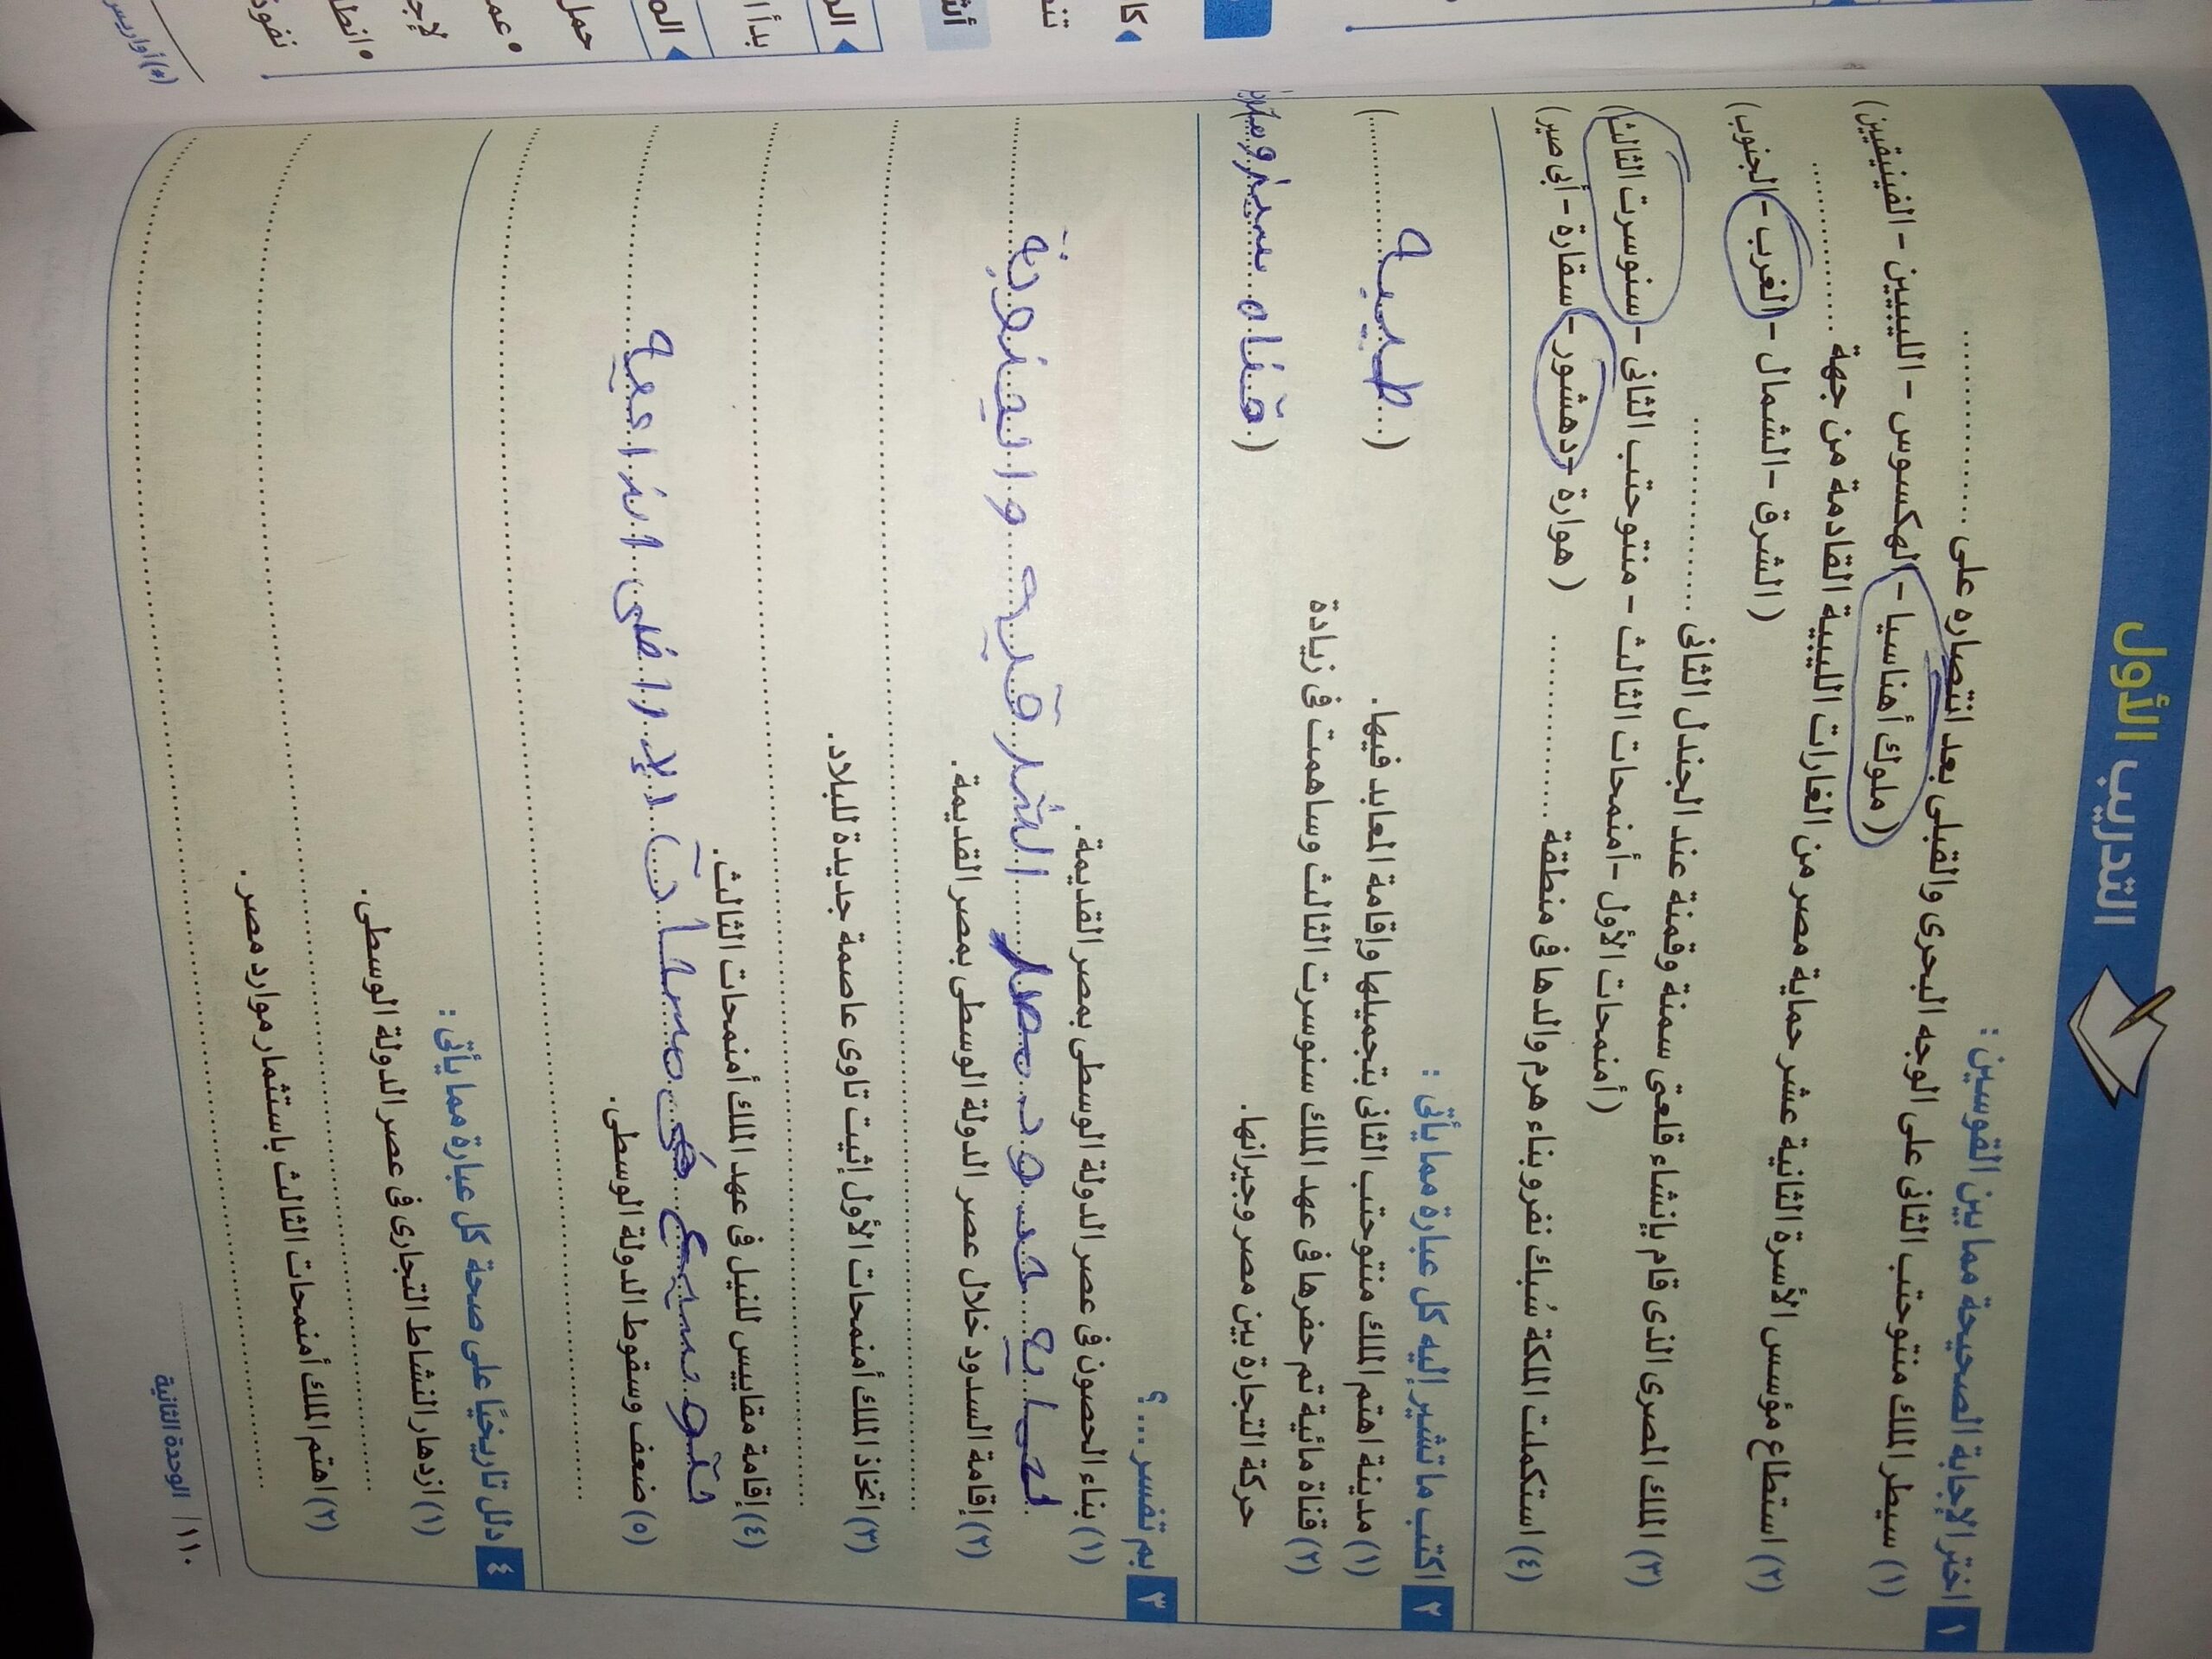 التدريب الأول
١ اختر الإجابة الصحيحة مما بين القوسين :
(١) سيطر الملك منتوحتب الثانى على الوجه البحرى والقبلى بعد انتصاره على ..............
( ملوك أهناسيا - الهكسوس - الليبيين - الفينيقيين)
(٢) استطاع مؤسس الأسرة الثانية عشر حماية مصر من الغارات الليبية القادمة من جهة ..............
( الشرق - الشمال - الغرب - الجنوب)
(٣) الملك المصرى الذى قام بإنشاء قلعتى سمنة وقمنة عند الجندل الثانى ..............
( أمنمحات الأول - أمنمحات الثالث - منتوحتب الثانى - سنوسرت الثالث)
(٤) استكملت الملكة سُبك نفرو بناء هرم والدها فى منطقة ..............
( هوارة - دهشور - سقارة - أبى صير)
٢ اكتب ما تشير إليه كل عبارة مما يأتى :
(١) مدينة اهتم الملك منتوحتب الثانى بتجميلها وإقامة المعابد فيها. (طيبه)
(٢) قناة مائية تم حفرها فى عهد الملك سنوسرت الثالث وساهمت فى زيادة
حركة التجارة بين مصر وجيرانها. (قناه سيزوستريس)
٣ بم تفسر ... ؟
(١) بناء الحصون فى عصر الدولة الوسطى بمصر القديمة.
لحمايه حدود مصر الشرقيه والجنوبية
(٢) إقامة السدود خلال عصر الدولة الوسطى بمصر القديمة.
(٣) اتخاذ الملك أمنمحات الأول إثيت تاوى عاصمة جديدة للبلاد.
(٤) إقامة مقاييس للنيل فى عهد الملك أمنمحات الثالث.
لتوسيع مساحة الاراضى الزراعيه
(٥) ضعف وسقوط الدولة الوسطى.
٤ دلل تاريخيًا على صحة كل عبارة مما يأتى :
(١) ازدهار النشاط التجارى فى عصر الدولة الوسطى.
(٢) اهتم الملك أمنمحات الثالث باستثمار موارد مصر.
١١٠ / الوحدة الثانية